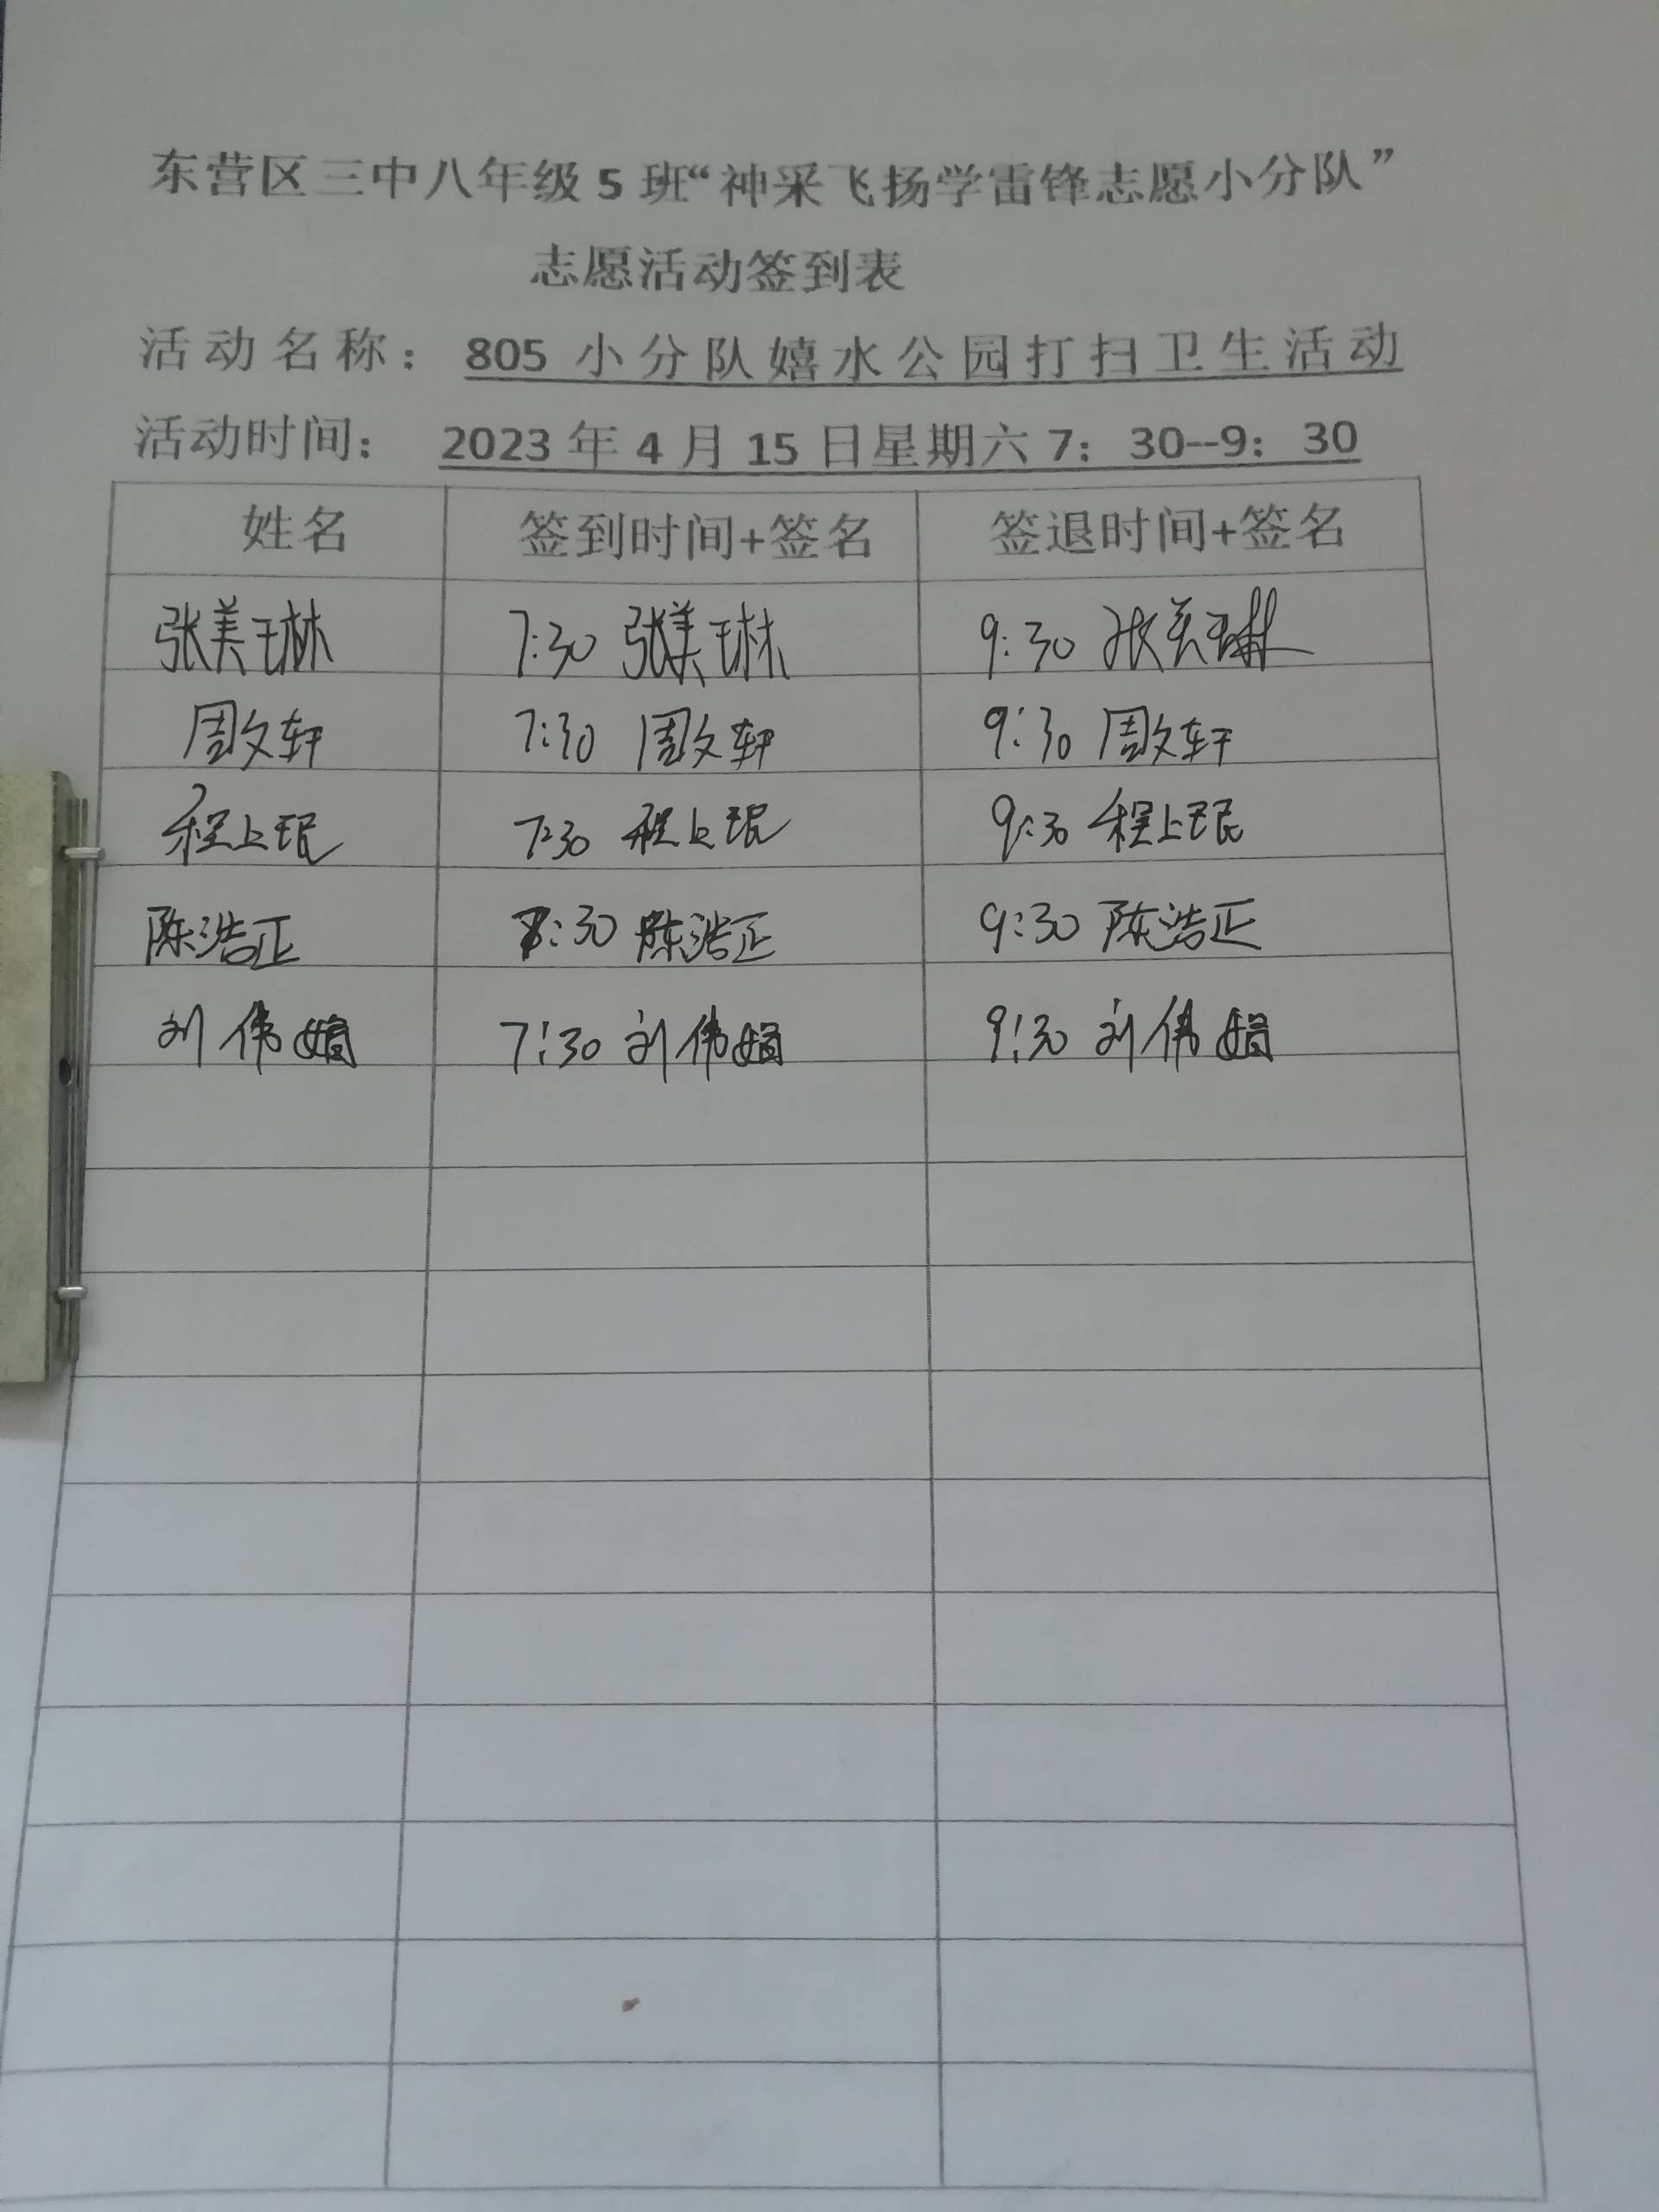 东营区三中八年级5班“神采飞扬学雷锋志愿小分队”
志愿活动签到表
活动名称：805小分队嬉水公园打扫卫生活动
活动时间：2023年4月15日星期六7：30--9：30
姓名 签到时间+签名 签退时间+签名
张美琳 7:30 张美琳 9:30 张美琳
周文轩 7:30 周文轩 9:30 周文轩
程上珉 7:30 程上珉 9:30 程上珉
陈浩正 7:30 陈浩正 9:30 陈浩正
刘伟娟 7:30 刘伟娟 9:30 刘伟娟